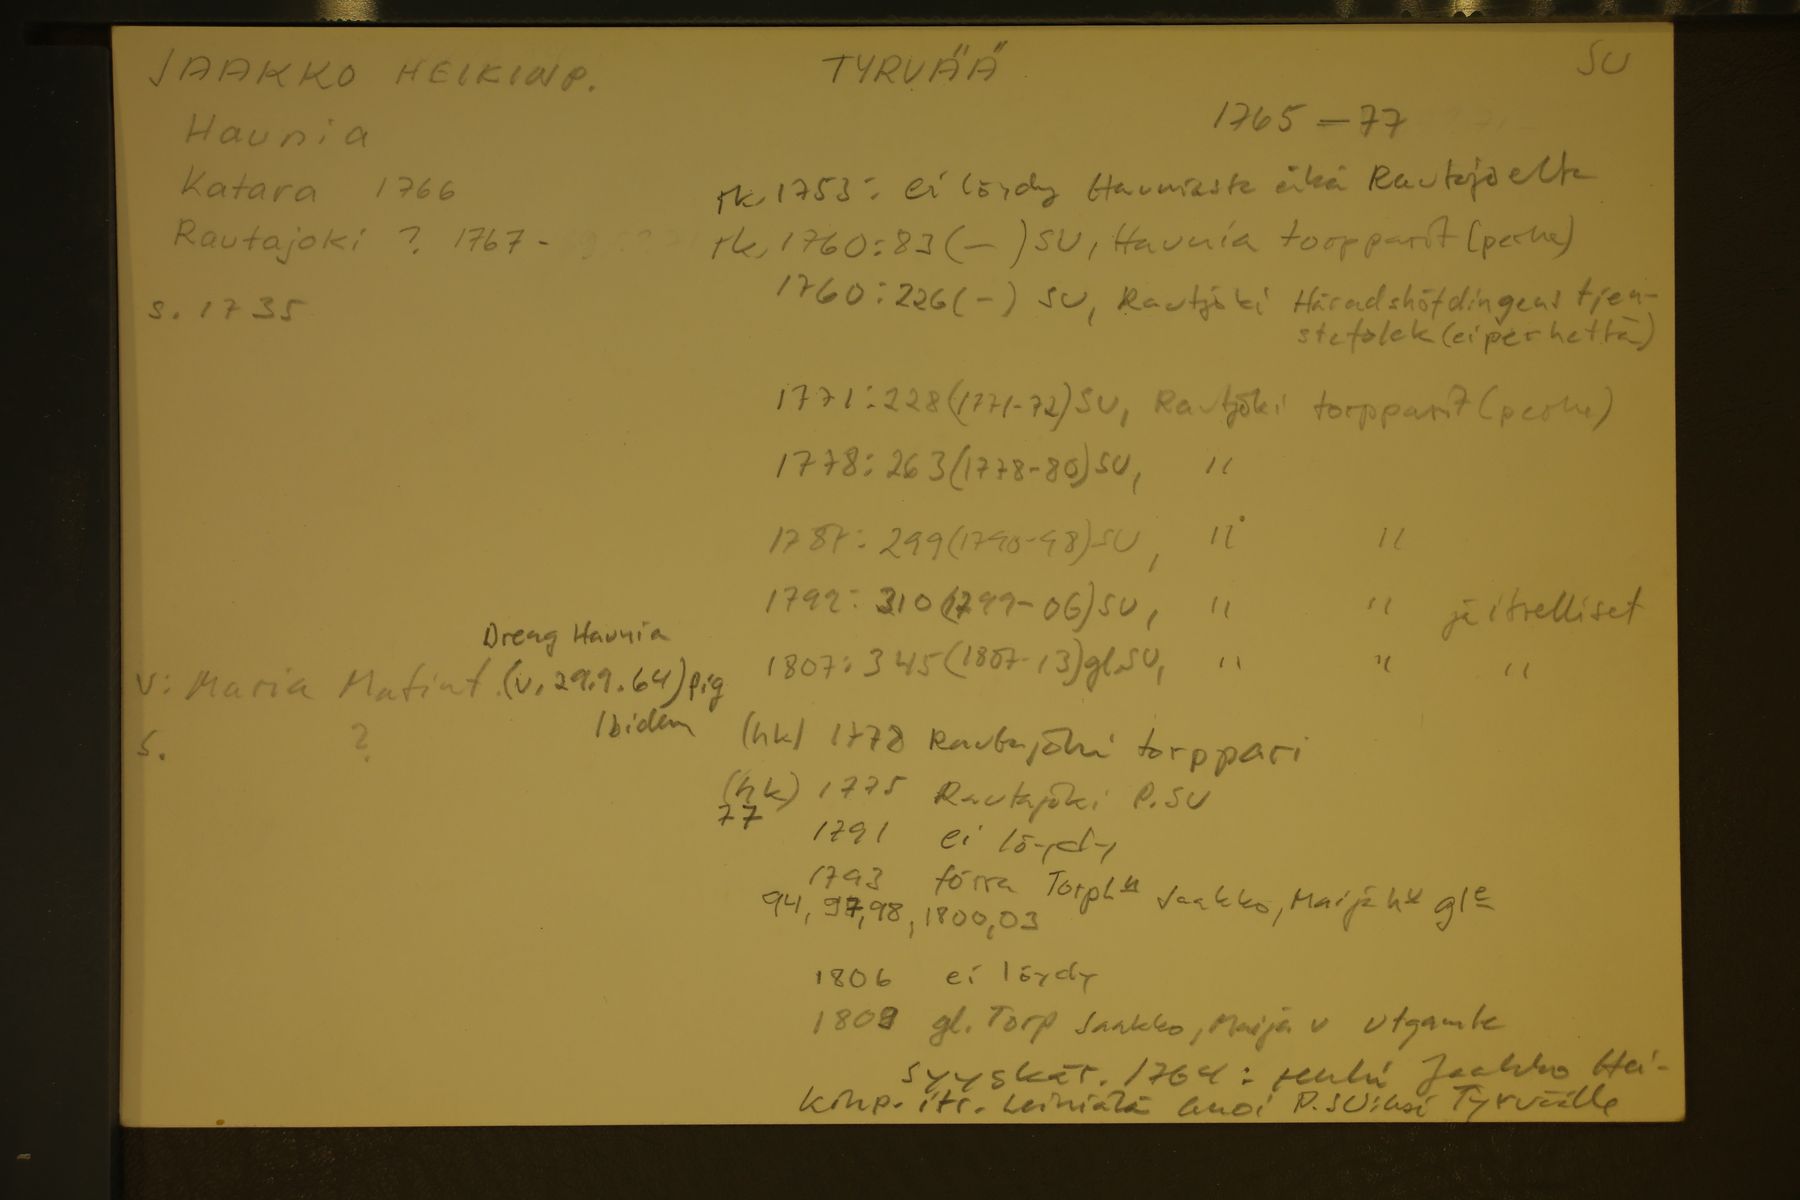 JAAKKO HEIKINP. TYRVÄÄ SU
1765-77
Haunia
Katara 1766
Rautajoki ? 1767-
s. 1735
rk, 1753: ei löydy Hauniasta eikä Rautajoelta
rk, 1760:83(-) SU, Haunia torpparit (perhe)
1760:226(-) SU, Rautjöki Häradshöfdingens tjen-
stefolck (ei perhettä)
1771:228(1771-72)SU, Rautjöki torpparit (perhe)
1778:263(1778-80)SU, "
1787: 299(1790-98)SU, " "
1792: 310(1799-06)SU, " " ja itselliset
1807:345(1807-13)gl.SU, " " "
Dreng Haunia
v: Maria Matint. (v. 29.9.64) pig
Ibidem
s. ?
(hk) 1778 Rautajöki torppari
(hk) 1775 Rautajöki P.SU
77
1791 ei löydy
1793 förra Torph Jaakko, Maija hu gle
94, 97, 98, 1800, 03
1806 ei löydy
1809 gl. Torp Jaakko, Maija v utgamle
syyskär. 1764: Jaakko Hei-
kinp. itr. P.SU:ksi Tyrväälle